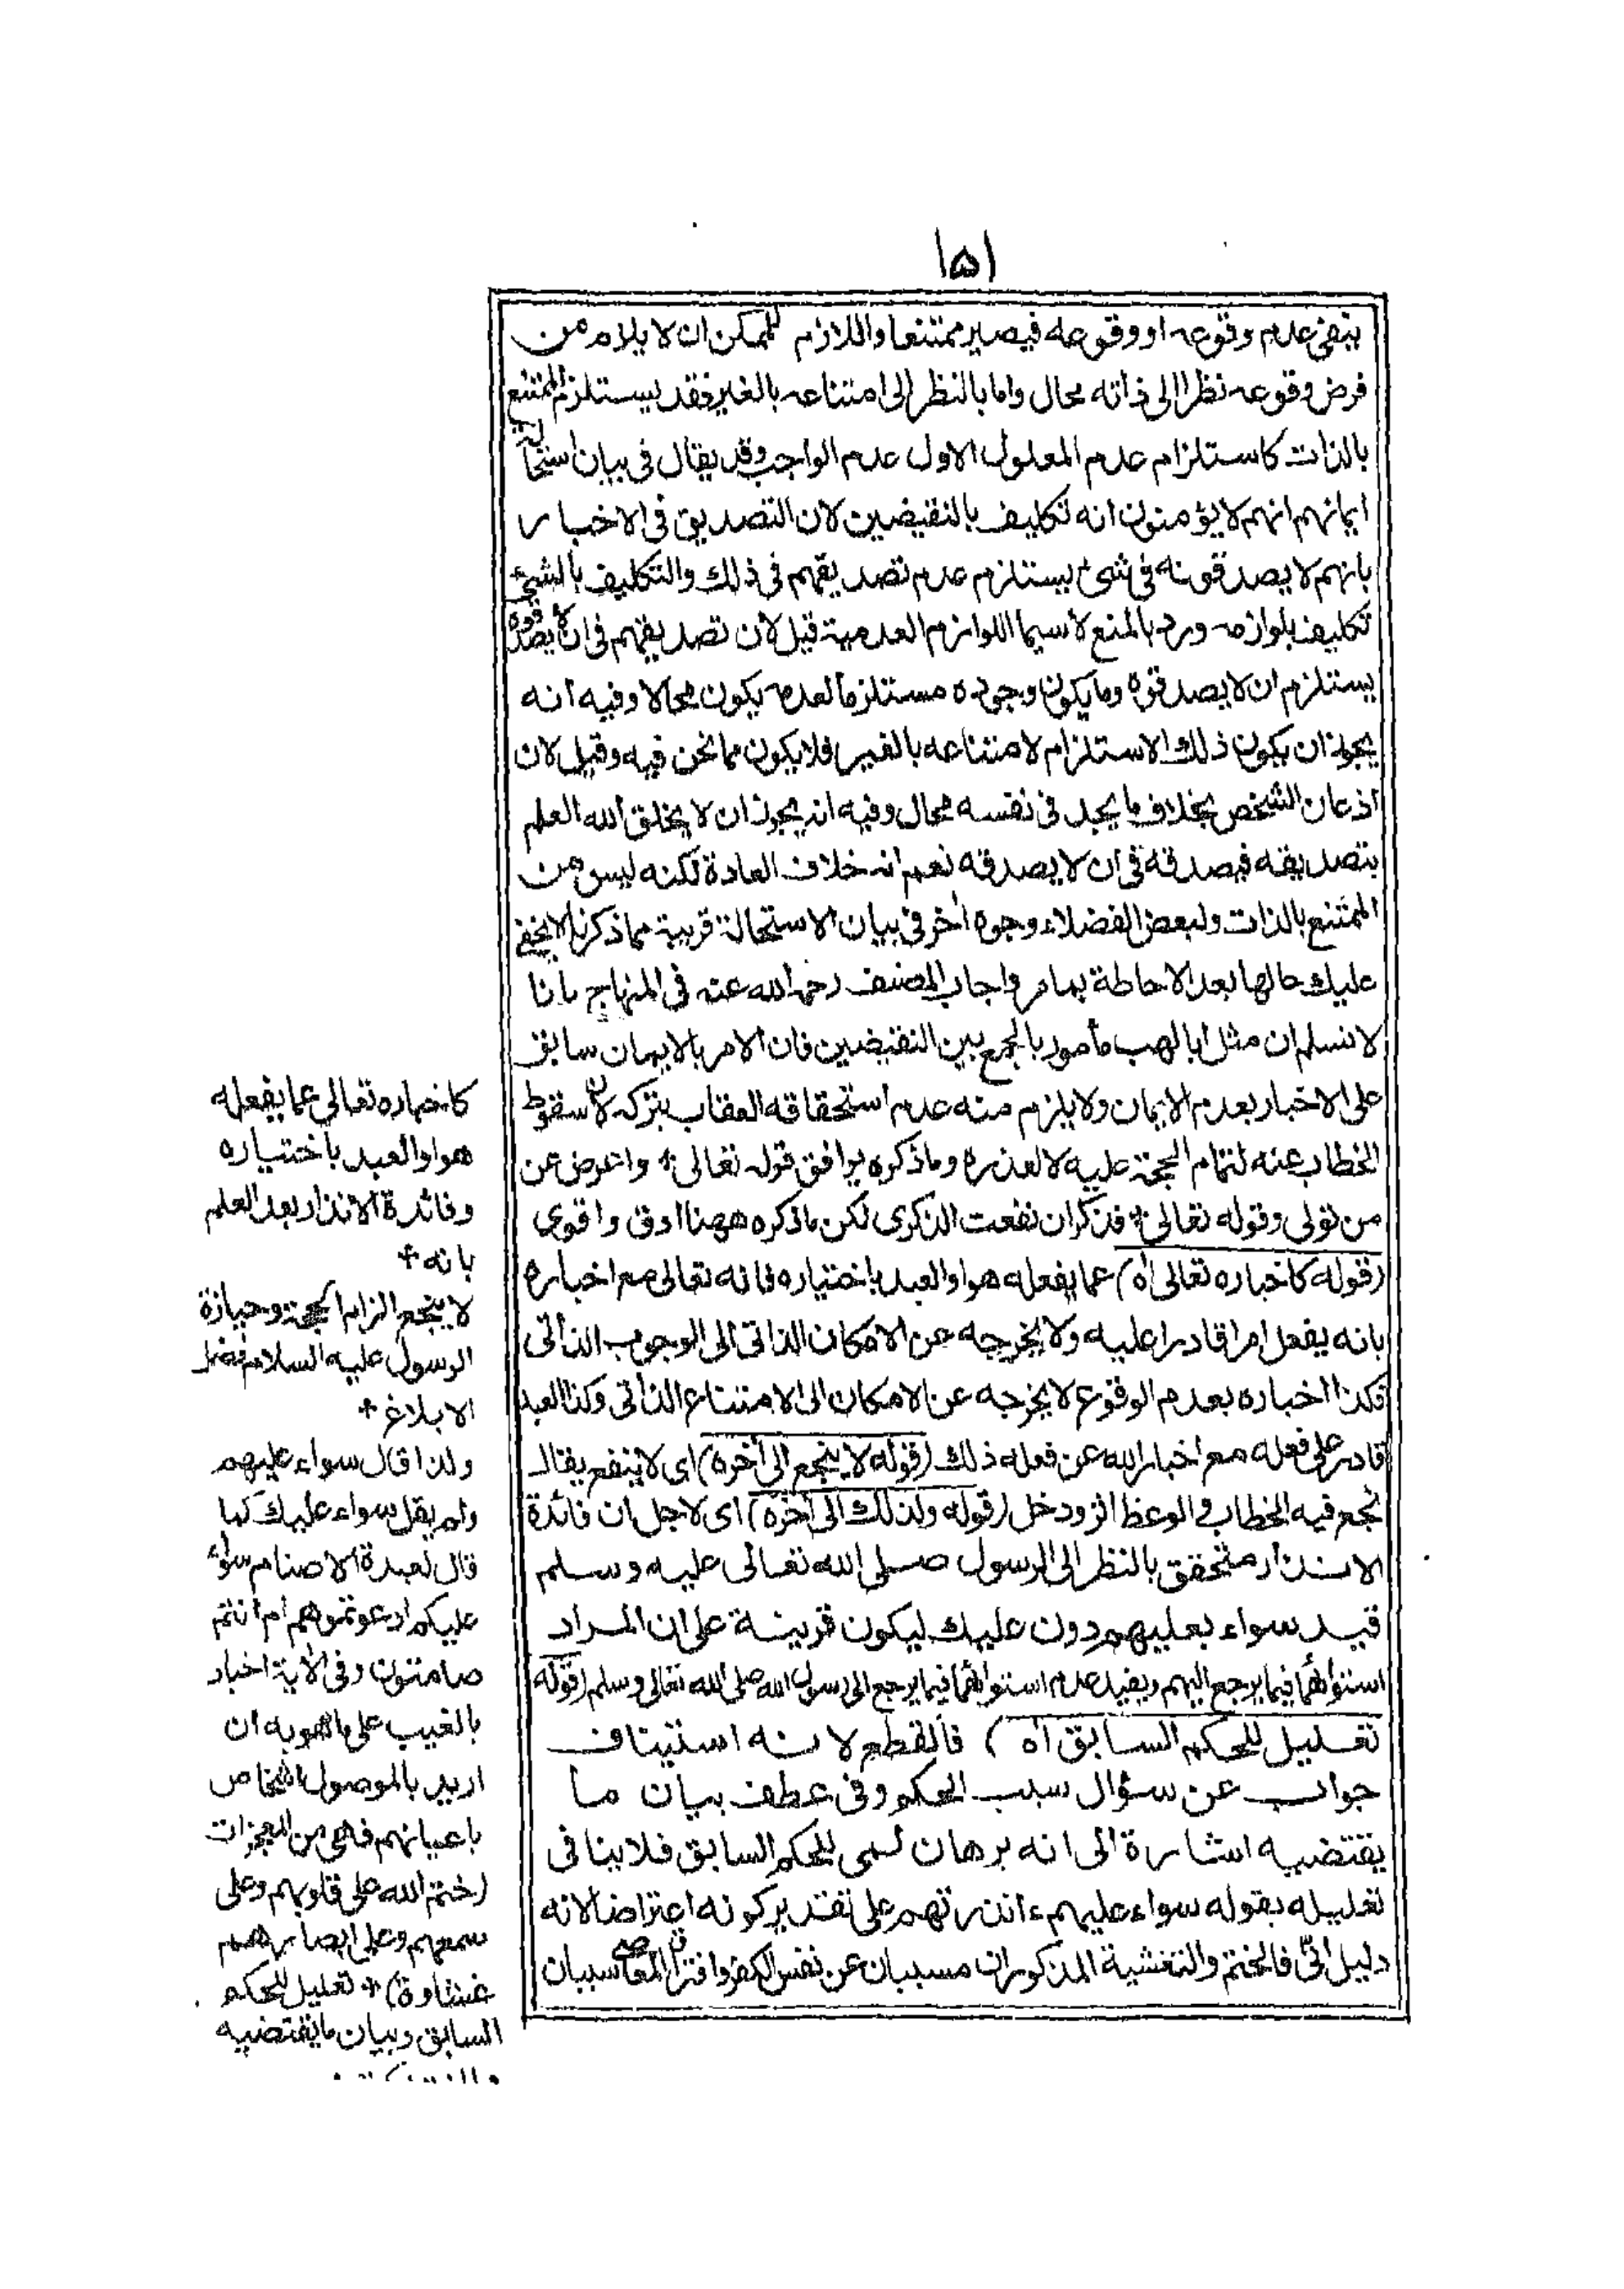 ١٥١
ينفى عدم وقوعه او وقوعه فيصير ممتنعا واللازم للممكن ان لا يلزم من
فرض وقوعه نظرا الى ذاته محال واما بالنظر الى امتناعه بالغير فقد يستلزم الممتنع
بالذات كاستلزام عدم المعلول الاول عدم الواجب وقد يقال فى بيان استحالة
ايمانهم انهم لا يؤمنون انه تكليف بالنقيضين لان التصديق فى الاخبار
بانهم لا يصدقونه فى شئ يستلزم عدم تصديقهم فى ذلك والتكليف بالشئ
تكليف بلوازمه ورد بالمنع لاسيما اللوازم العدمية قيل لان تصديقهم فى ان لا يصدقوه
يستلزم ان لا يصدقوه وما يكون وجوده مستلزما لعدمه يكون محالا وفيه انه
يجوز ان يكون ذلك الاستلزام لامتناعه بالغير فلا يكون مما نحن فيه وقيل لان
اذعان الشخص بخلاف ما يجد فى نفسه محال وفيه انه يجوز ان لا يخلق الله العلم
بتصديقه فيصدقه فى ان لا يصدقه نعم انه خلاف العادة لكنه ليس من
الممتنع بالذات ولبعض الفضلاء وجوه اخر فى بيان الاستحالة قريبة مما ذكرنا لا يخفى
عليك حالها بعد الاحاطة بما مر واجاب المصنف رحمه الله عنه فى المنهاج بانا
لا نسلم ان مثل ابا لهب مأمور بالجمع بين النقيضين فان الامر بالايمان سابق
على الاخبار بعدم الايمان ولا يلزم منه عدم استحقاقه العقاب بتركه لان سقوط
الخطاب عنه لتمام الحجة عليه لا لعذره وما ذكره يوافق قوله تعالى * واعرض عن
من تولى وقوله تعالى * فذكر ان نفعت الذكرى لكن ما ذكره ههنا ادق واقوى
(قوله كاخباره تعالى اه) عما يفعله هو او العبد باختياره فانه تعالى مع اخباره
بانه يفعل امرا قادرا عليه ولا يخرجه عن الامكان الذاتى الى الوجوب الذاتى
فكذا اخباره بعدم الوقوع لا يخرجه عن الامكان الى الامتناع الذاتى وكذا العبد
قادر على فعله مع اخبار الله عن فعله ذلك (قوله لا ينجع الى آخره) اى لا ينفع يقال
نجع فيه الخطاب والوعظ اثر ودخل (قوله ولذلك الى آخره) اى لاجل ان فائدة
الانذار متحقق بالنظر الى الرسول صلى الله تعالى عليه وسلم
قيد سواء بعليهم دون عليك ليكون قرينة على ان المراد
استواؤهما فيما يرجع اليهم ويفيد عدم استوائهما فيما يرجع الى رسول الله صلى الله تعالى وسلم (قوله
تعليل للحكم السابق اه) فالقطع لانه استيناف
جواب عن سؤال سبب الحكم وفى عطف بيان ما
يقتضيه اشارة الى انه برهان لمى للحكم السابق فلا ينافى
تعليله بقوله سواء عليهم ءانذرتهم على تقدير كونه اعتراضا لانه
دليل انّى فالختم والتغشية المذكوران مسببان عن نفس الكفر واقتراف المعاصى سببان
كاخباره تعالى عما يفعله
هو او العبد باختياره
وفائدة الانذار بعد العلم
بانه *
لا ينجع الزام الحجة وحيازة
الرسول عليه السلام فضل
الابلاغ *
ولذا قال سواء عليهم
ولم يقل سواء عليك كما
قال لعبدة الاصنام سواء
عليكم ادعوتموهم ام انتم
صامتون وفى الآية اخبار
بالغيب على ما هو به ان
اريد بالموصول اشخاص
باعيانهم فهى من المعجزات
(ختم الله على قلوبهم وعلى
سمعهم وعلى ابصارهم
غشاوة) * تعليل للحكم
السابق وبيان ما يقتضيه